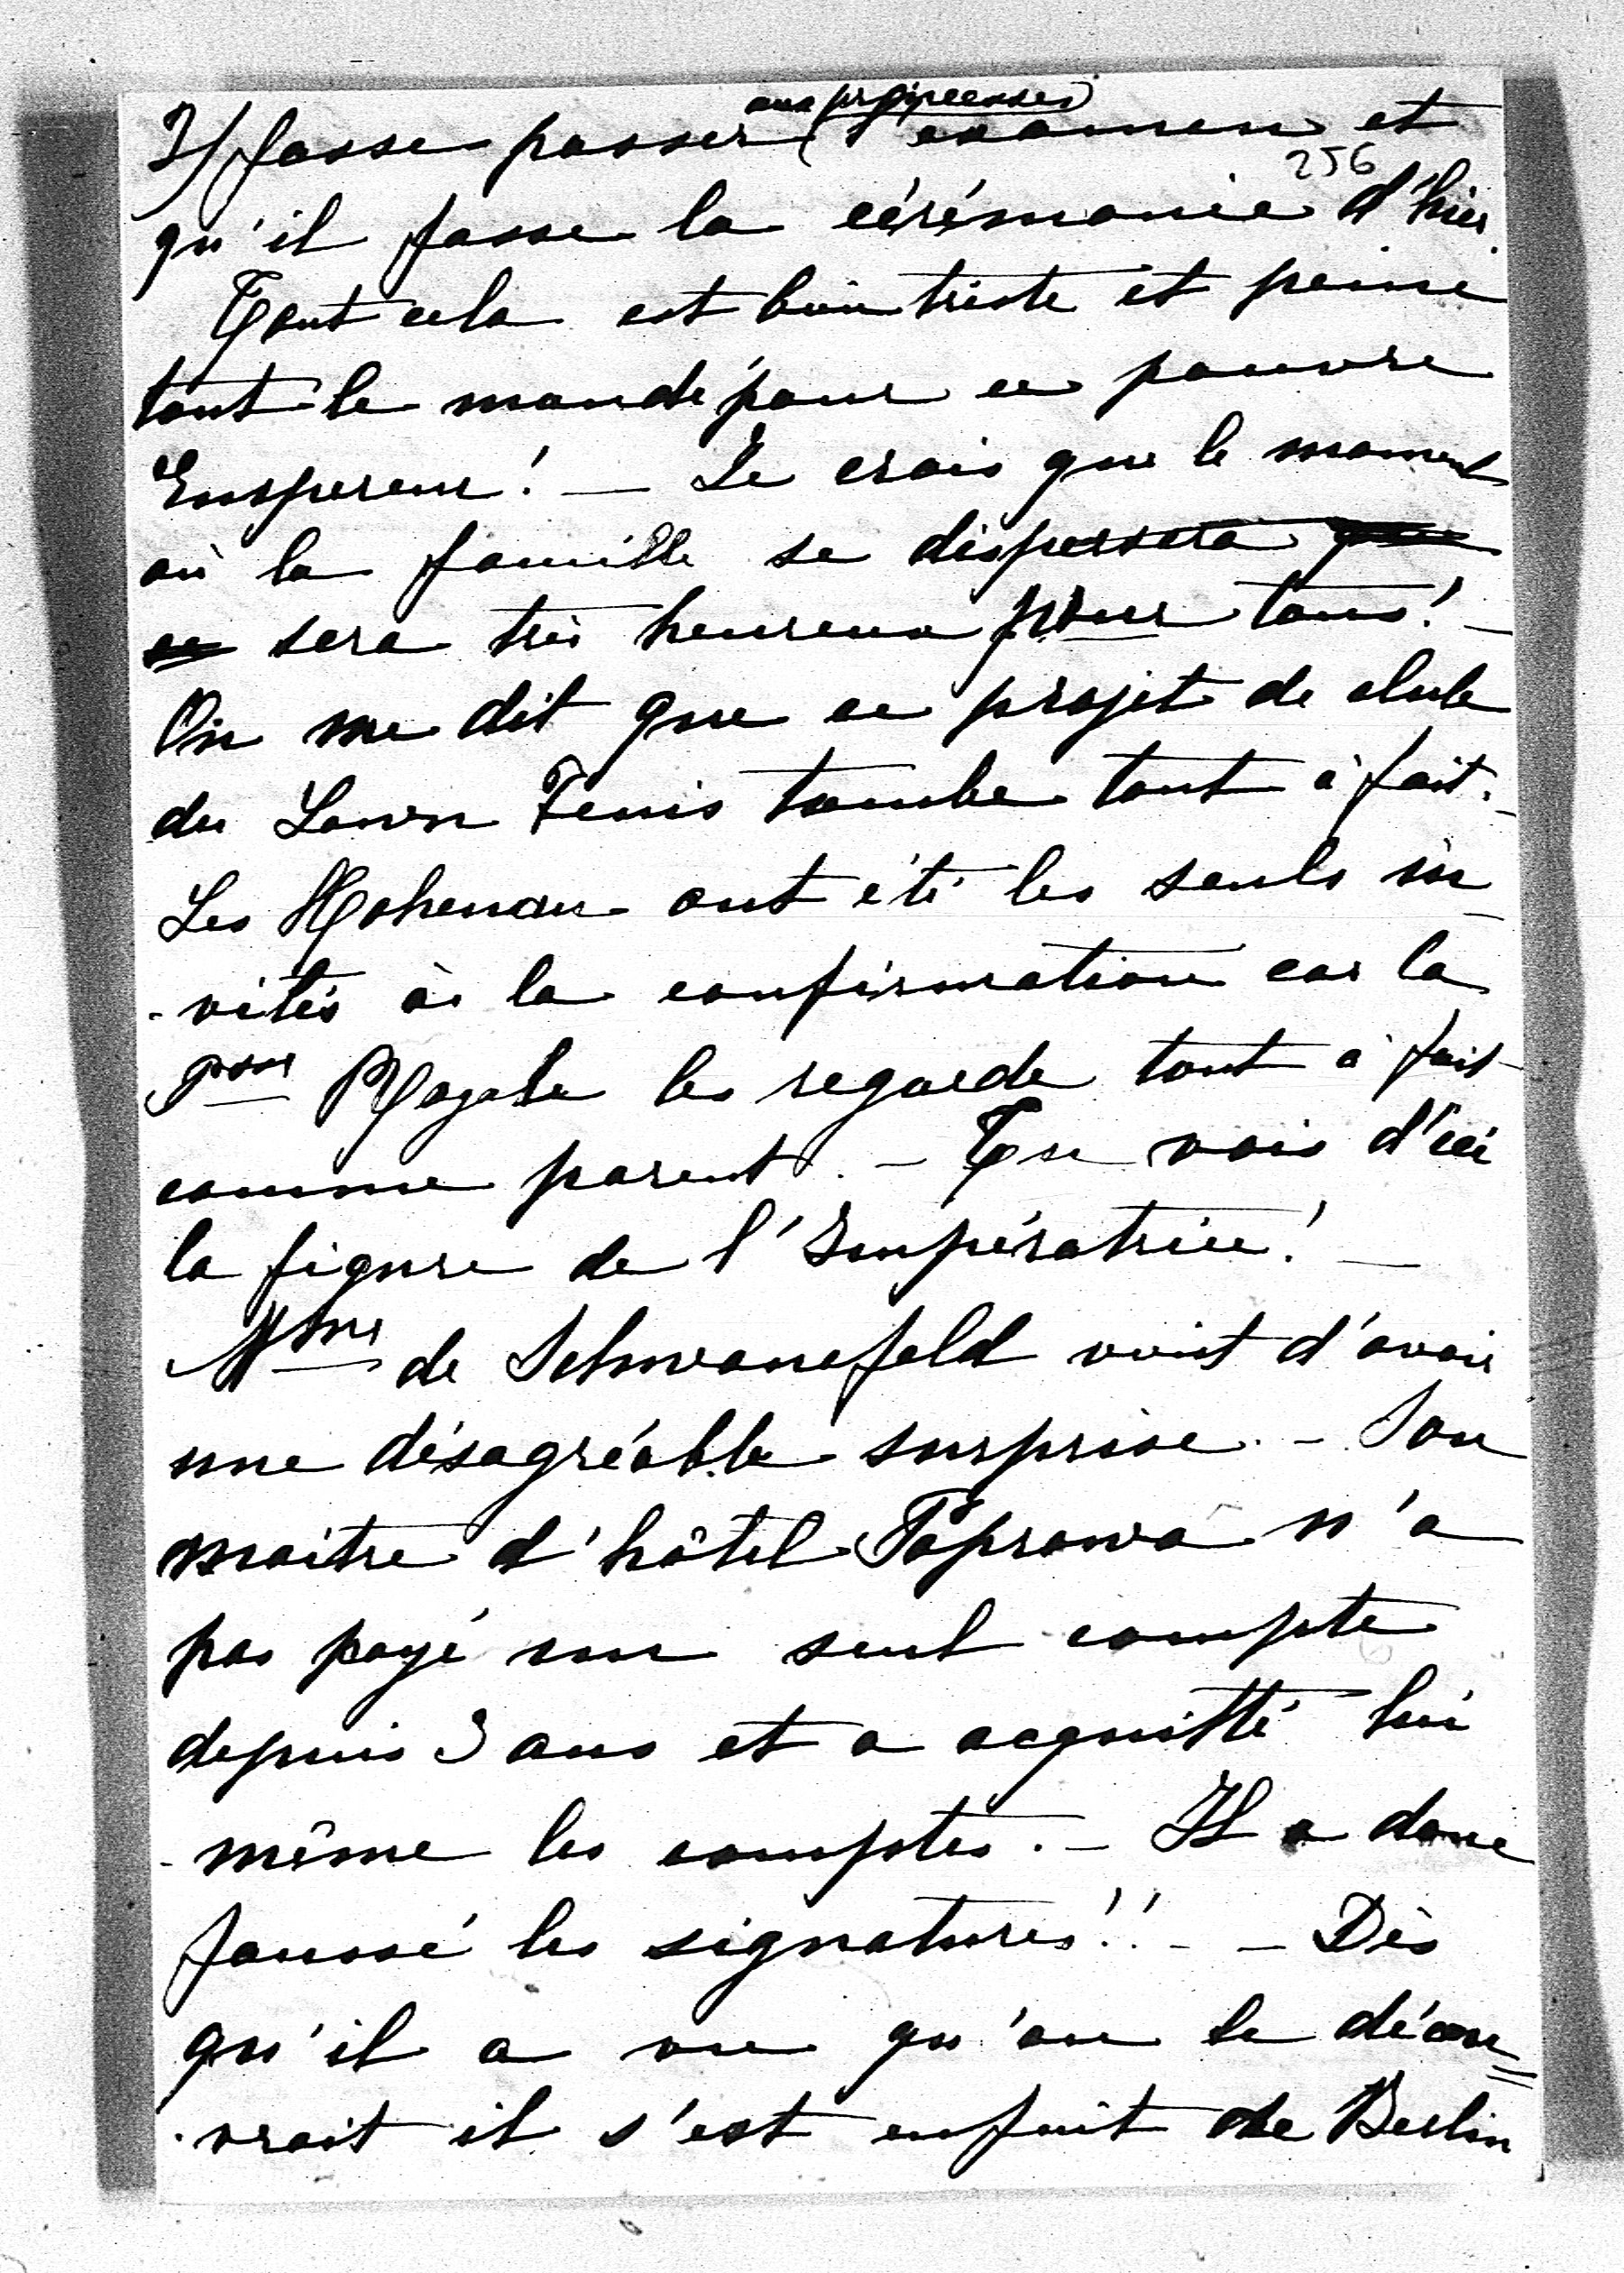 3/ fasse passer (aux princesses) l'examen et
256
qu'il fasse la cérémonie d'hier.
Tout cela est bien triste et peine
tout le monde pour ce pauvre
Empereur! — Je crois que le moment
où la famille se dispersera
sera très heureux pour tous! —
On me dit que ce projet de club
du Lawn Tenis tombe tout à fait. -
Les Hohenau ont été les seuls in-
-vités à la confirmation car la
Psse Royale les regarde tout à fait
comme parent. — Tu vois d'ici
la figure de l'Impératrice! —
Mme de Schwanefeld vient d'avoir
une désagréable surprise. — Son
maître d'hôtel Poprawa n'a
pas payé un seul compte
depuis 3 ans et a acquitté lui
-même les comptes. — Il a donc
faussé les signatures!! - — Dès
qu'il a vu qu'on le décou=
-vrait il s'est enfuit de Berlin